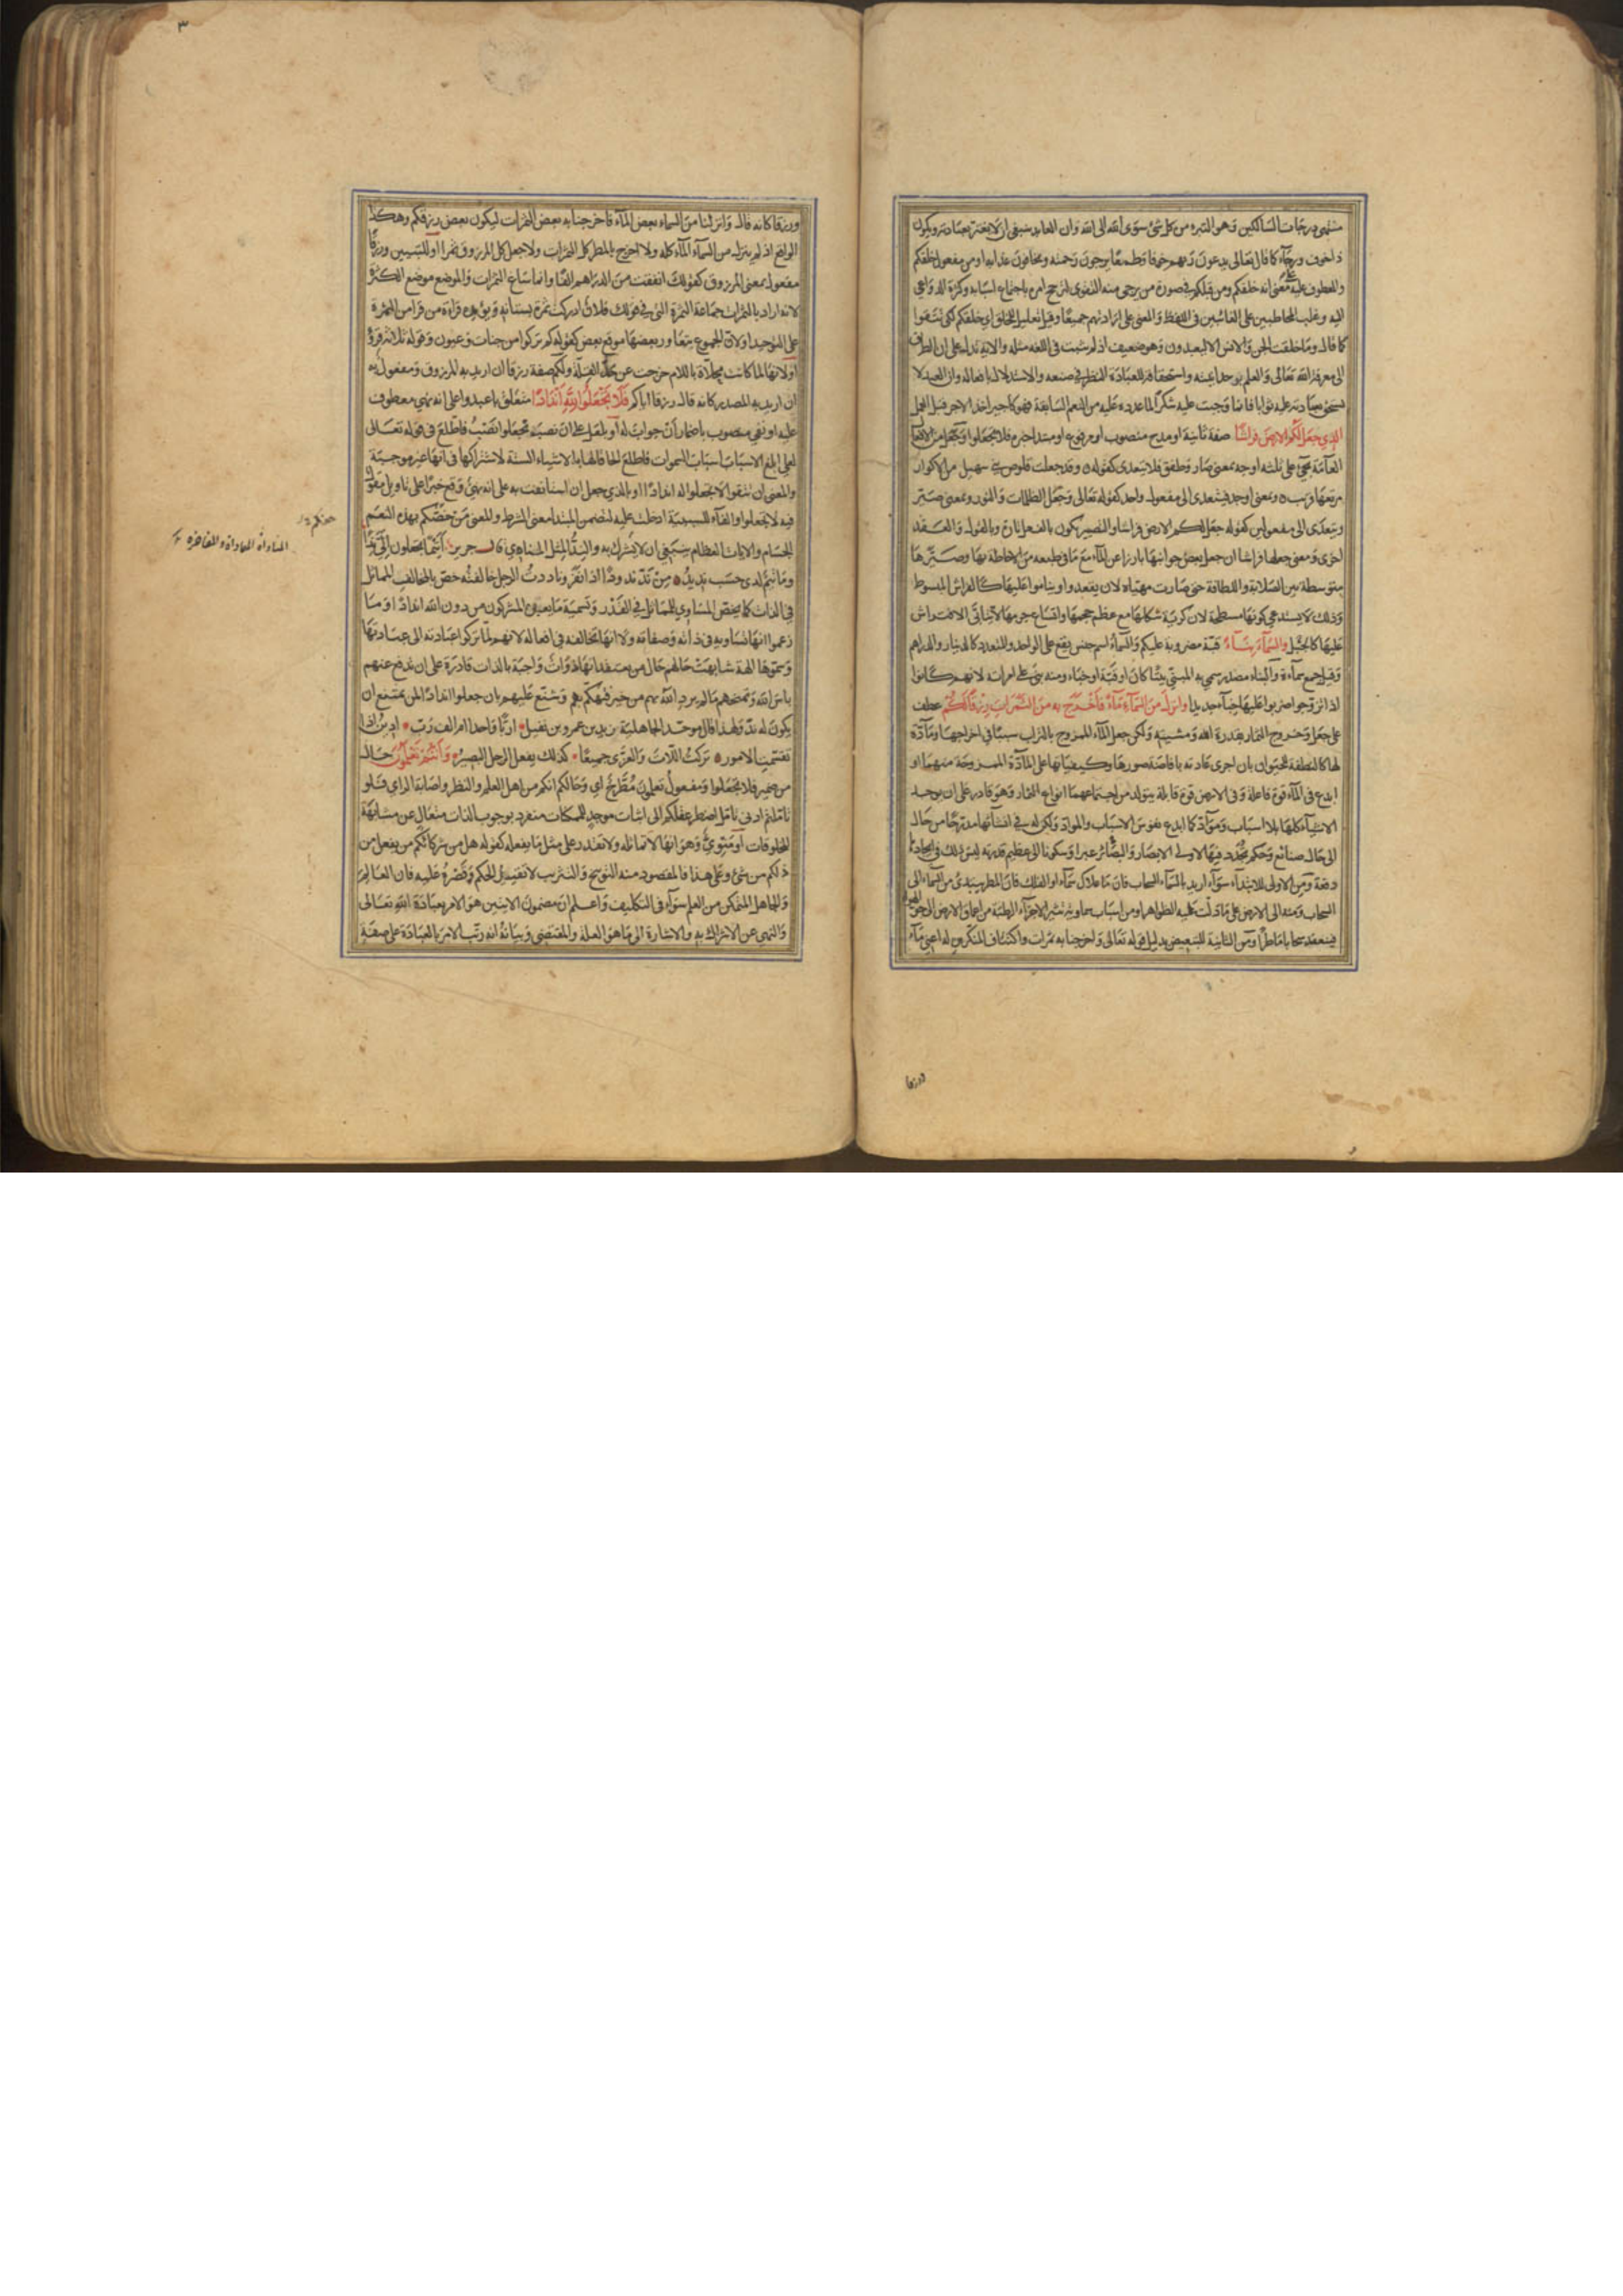 منتهى درجات السالكين وهو التبرء من كل شئ سوى الله الى الله وان العابد ينبغى ان لا يغتر بعبادته ويكون
ذا خوف ورجآء كما قال تعالى يدعون ربهم خوفا وطمعا يرجون رحمته ويخافون عذابه او من مفعول خلقكم
والمعطوف عليه على معنى انه خلقكم ومن قبلكم فى صورة من يرجى منه التقوى لترجح امره باجتماع اسبابه وكثرة الدواعى
اليه وغلب المخاطبين على الغائبين فى اللفظ والمعنى على ارادتهم جميعا وقيل تعليل للخلق اى خلقكم لكى تتقوا
كما قال وما خلقت الجن والانس الا ليعبدون وهو ضعيف اذ لم يثبت فى اللغة مثله والاية تدل على ان الطريق
الى معرفة الله تعالى والعلم بوحدانيته واستحقاقه للعبادة النظر فى صنعه والاستدلال بافعاله وان العبد لا
يستحق بعبادته عليه ثوابا فانها وجبت عليه شكرا لما عدده عليه من النعم السابقة فهو كاجير اخذ الاجر قبل العمل
الذى جعل لكم الارض فراشا صفة ثانية او مدح منصوب او مرفوع او مبتدا خبره فلا تجعلوا وجعل من الافعال
العامة يجئ على ثلثة اوجه بمعنى صار وطفق فلا يتعدى كقوله وقد جعلت قلوص بنى سهيل من الاكوار
مرتعها قريب وبمعنى اوجد فيتعدى الى مفعول واحد كقوله تعالى وجعل الظلمات والنور وبمعنى صير
ويتعدى الى مفعولين كقوله جعل لكم الارض فراشا والتصيير يكون بالفعل تارة وبالقول والعقد
اخرى ومعنى جعلها فراشا ان جعل بعض جوانبها بارزا عن المآء مع ما فى طبعه من الاحاطة بها وصيرها
متوسطة بين الصلابة واللطافة حتى صارت مهيأة لان يقعدوا ويناموا عليها كالفراش المبسوط
وذلك لا يستدعى كونها مسطحة لان كرية شكلها مع عظم حجمها واتساع جرمها لا يأبى الافتراش
عليها كالجبل والسمآء بنآء قبة مضروبة عليكم والسمآء اسم جنس يقع على الواحد والمتعدد كالدينار والدراهم
وقيل جمع سمآءة والبناء مصدر سمى به المبنى بيتا كان او قبة او خباء ومنه بنى على امراته لانهم كانوا
اذا تزوجوا ضربوا عليها خبآء جديدا وانزل من السمآء مآء فاخرج به من الثمرات رزقا لكم عطف
على جعل وخروج الثمار بقدرة الله ومشيته ولكن جعل المآء الممزوج بالتراب سببا فى اخراجها ومآدة
لها كالنطفة للحيوان بان اجرى عادته بافاضة صورها وكيفياتها على المآدة الممزوجة منهما او
ابدع فى المآء قوة فاعلة وفى الارض قوة قابلة يتولد من اجتماعهما انواع الثمار وهو قادر على ان يوجد
الاشيآء كلها بلا اسباب وموآد كما ابدع نفوس الاسباب والمواد ولكن له فى انشآئها مدرجا من حال
الى حال صنائع وحكم يجدد فيها لاولى الابصار والبصائر عبرا وسكونا الى عظيم قدرته ليس ذلك فى ايجادها
دفعة ومن الاولى للابتدآء سوآء اريد بالسمآء السحاب فان ما علاك سمآء او الفلك فان المطر يبتدئ من السمآء الى
السحاب ومنه الى الارض على ما دلت عليه الظواهر او من اسباب سماوية تثير الاجزآء الرطبة من اعماق الارض الى جو الهوآء
فينعقد سحابا ماطرا ومن الثانية للتبعيض بدليل قوله تعالى واخرجنا به ثمرات واكتناف المنكرين له اعنى مآء
ورزقا كانه قال وانزلنا من السماء بعض المآء فاخرجنا به بعض الثمرات ليكون بعض رزقكم وهكذا
الواقع اذ لم ينزل من السمآء المآء كله ولا اخرج بالمطر كل الثمرات ولا جعل كل المرزوق ثمرا او للتبيين ورزقا
مفعول بمعنى المرزوق كقولك انفقت من الدراهم الفا وانما ساغ الثمرات والموضع موضع الكثرة
لانه اراد بالثمرات جماعة الثمرة التى فى قولك فلان ادركت ثمرة بستانه ويؤيده قراءة من قرا من الثمرة
على التوحيد او لان الجموع يتعاور بعضها موقع بعض كقوله كم تركوا من جنات وعيون وقوله ثلثة قروء
او لانها لما كانت محلاة باللام خرجت عن حد القلة ولكم صفة رزقا ان اريد به المرزوق ومفعول به
ان اريد به المصدر كانه قال رزقا اياكم فلا تجعلوا لله اندادا متعلق باعبدوا على انه نهى معطوف
عليه او نفى منصوب باضمار ان جواب له او بلعل على ان نصب تجعلوا نصب فاطلع فى قوله تعالى
لعلى ابلغ الاسباب اسباب السموات فاطلع الحاقا لها بالاشياء الستة لاشتراكها فى انها غير موجبة
والمعنى ان تتقوا لا تجعلوا له اندادا او بالذى جعل ان استانفت به على انه نهى وقع خبرا على تاويل مقول
فيه لا تجعلوا والفآء للسببية ادخلت عليه لتضمن المبتدا معنى الشرط والمعنى من خصكم بهذه النعم
حفكم
الجسام والايات العظام ينبغى ان لا يشرك به والند المثل المناوى قال جرير اتيما تجعلون الى ندا
المناداة المعاداة والمفاخرة
وما تيم لذى حسب نديد من ند ند ودا اذا نفر وناددت الرجل خالفته خص بالمخالف المماثل
فى الذات كما خص المساوى للمماثل فى القدر وتسمية ما يعبده المشركون من دون الله اندادا وما
زعموا انها تساويه فى ذاته وصفاته ولا انها تخالفه فى افعاله لانهم لما تركوا عبادته الى عبادتها
وسموها الهة شابهت حالهم حال من يعتقد انها ذوات واجبة بالذات قادرة على ان تدفع عنهم
باس الله وتمنحهم ما لم يرد الله بهم من خير فتهكم بهم وشنع عليهم بان جعلوا اندادا لمن يمتنع ان
يكون له ند ولهذا قال موحد الجاهلية زيد بن عمرو بن نفيل اربا واحدا ام الف رب ادين اذا
تقسمت الامور تركت اللات والعزى جميعا كذلك يفعل الرجل البصير وانتم تعلمون حال
من ضمير فلا تجعلوا ومفعول تعلمون مطرح اى وحالكم انكم من اهل العلم والنظر واصابة الراى فلو
تاملتم ادنى تامل اضطر عقلكم الى اثبات موجد للممكنات متفرد بوجوب الذات متعال عن مشابهة
المخلوقات او منوى وهو انها لا تماثله ولا تقدر على مثل ما يفعله كقوله هل من شركائكم من يفعل من
ذلكم من شئ وعلى هذا فالمقصود منه التوبيخ والتثريب لا تقييد الحكم وقصره عليه فان العالم
والجاهل المتمكن من العلم سوآء فى التكليف واعلم ان مضمون الايتين هو الامر بعبادة الله تعالى
والنهى عن الاشراك به والاشارة الى ما هو العلة والمقتضى وبيانه انه رتب الامر بالعبادة على صفة
ورزقا